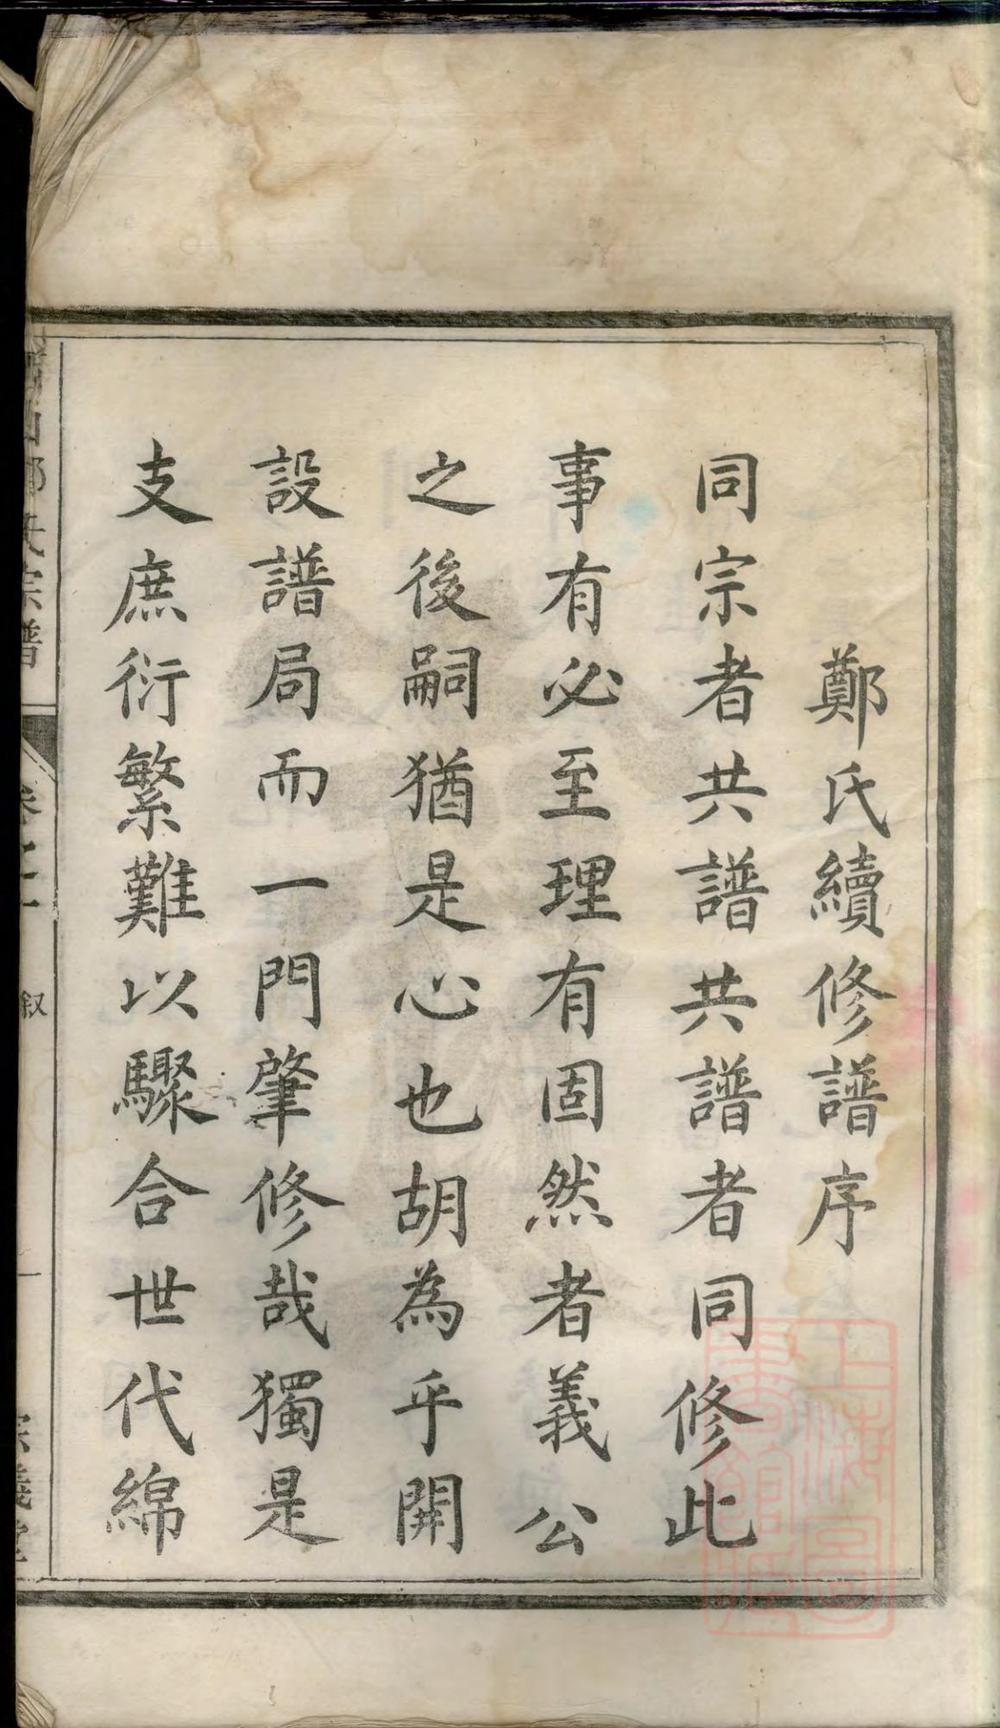 鄭氏續修譜序
同宗者共譜共譜者同修此
事有必至理有固然者義公
之後嗣猶是心也胡為乎開
設譜局而一門肇修哉獨是
支庶衍繁難以驟合世代綿
氏宗譜
叙
一